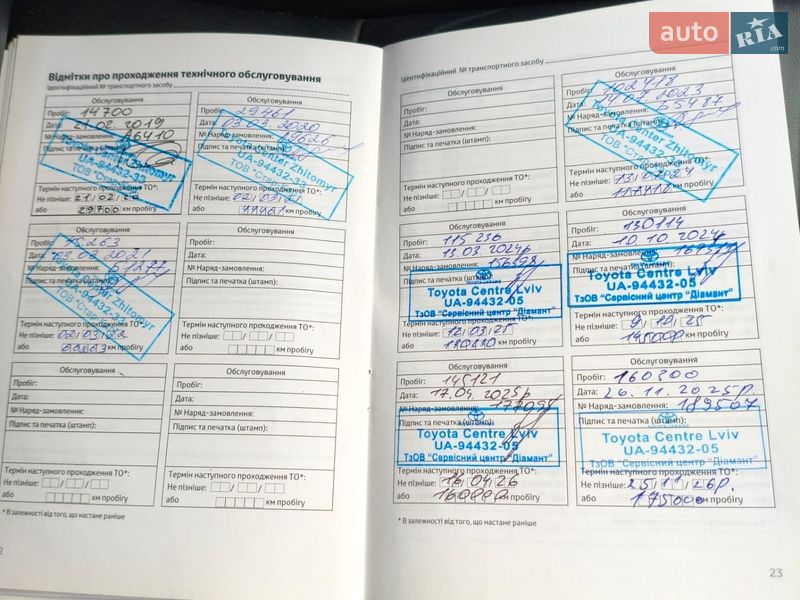 auto RIA .com
Відмітки про проходження технічного обслуговування
Ідентифікаційний № транспортного засобу
Обслуговування
Пробіг: 14700
Дата: 21.02.2019
№ Наряд-замовлення: 46410
Підпис та печатка (штамп):
Toyota Center Zhitomyr
UA-94432-33
ТОВ "Стар
Термін наступного проходження ТО*:
Не пізніше: 21/02/20
або 29700 км пробігу
Обслуговування
Пробіг: 29461
Дата: 2020
№ Наряд-замовлення:
Підпис та печатка (штамп):
Center Zhitomyr
UA-94432-33
ТОВ "Стар
Термін наступного проходження ТО*:
Не пізніше: 02/03/21
або 44461 км пробігу
Обслуговування
Пробіг: 45263
Дата: 03.02.2021
№ Наряд-замовлення: 61277
Center Zhitomyr
UA-94432-33
ТОВ "Стар
Термін наступного проходження ТО*:
Не пізніше: 02/03/22
або км пробігу
Обслуговування
Пробіг:
Дата:
№ Наряд-замовлення:
Підпис та печатка (штамп):
Термін наступного проходження ТО*:
Не пізніше:
або км пробігу
Обслуговування
Пробіг:
Дата:
№ Наряд-замовлення:
Підпис та печатка (штамп):
Термін наступного проходження ТО*:
Не пізніше:
або км пробігу
Обслуговування
Пробіг:
Дата:
№ Наряд-замовлення:
Підпис та печатка (штамп):
Термін наступного проходження ТО*:
Не пізніше:
або км пробігу
* В залежності від того, що настане раніше
Ідентифікаційний № транспортного засобу
Обслуговування
Пробіг:
Дата:
№ Наряд-замовлення:
Підпис та печатка (штамп):
Термін наступного проходження ТО*:
Не пізніше:
або км пробігу
Обслуговування
Пробіг: 102418
Дата: 14.07.2023
№ Наряд-замовлення:
Підпис та печатка (штамп):
Center Zhitomyr
UA-94432-33
ТОВ "Стар
Термін наступного проходження ТО*:
Не пізніше: 2024
або км пробігу
Обслуговування
Пробіг: 115 236
Дата: 13.03.2024р
№ Наряд-замовлення: 156398
Підпис та печатка (штамп):
Toyota Centre Lviv
UA-94432-05
ТзОВ "Сервісний центр "Діамант"
Термін наступного проходження ТО*:
Не пізніше: 12/03/25
або 130230 км пробігу
Обслуговування
Пробіг: 130114
Дата: 10.10.2024р
№ Наряд-замовлення:
Підпис та печатка (штамп):
Toyota Centre Lviv
UA-94432-05
ТзОВ "Сервісний центр "Діамант"
Термін наступного проходження ТО*:
Не пізніше: 9/10/25
або 145000 км пробігу
Обслуговування
Пробіг: 145121
Дата: 17.04.2025р
№ Наряд-замовлення:
Підпис та печатка (штамп):
Toyota Centre Lviv
UA-94432-05
ТзОВ "Сервісний центр "Діамант"
Термін наступного проходження ТО*:
Не пізніше: 16/04/26
або 160000 км пробігу
Обслуговування
Пробіг: 160300
Дата: 26.11.2025р.
№ Наряд-замовлення: 189507
Підпис та печатка (штамп):
Toyota Centre Lviv
UA-94432-05
ТзОВ "Сервісний центр "Діамант"
Термін наступного проходження ТО*:
Не пізніше: 25/11/26р.
або 175000 км пробігу
* В залежності від того, що настане раніше
23